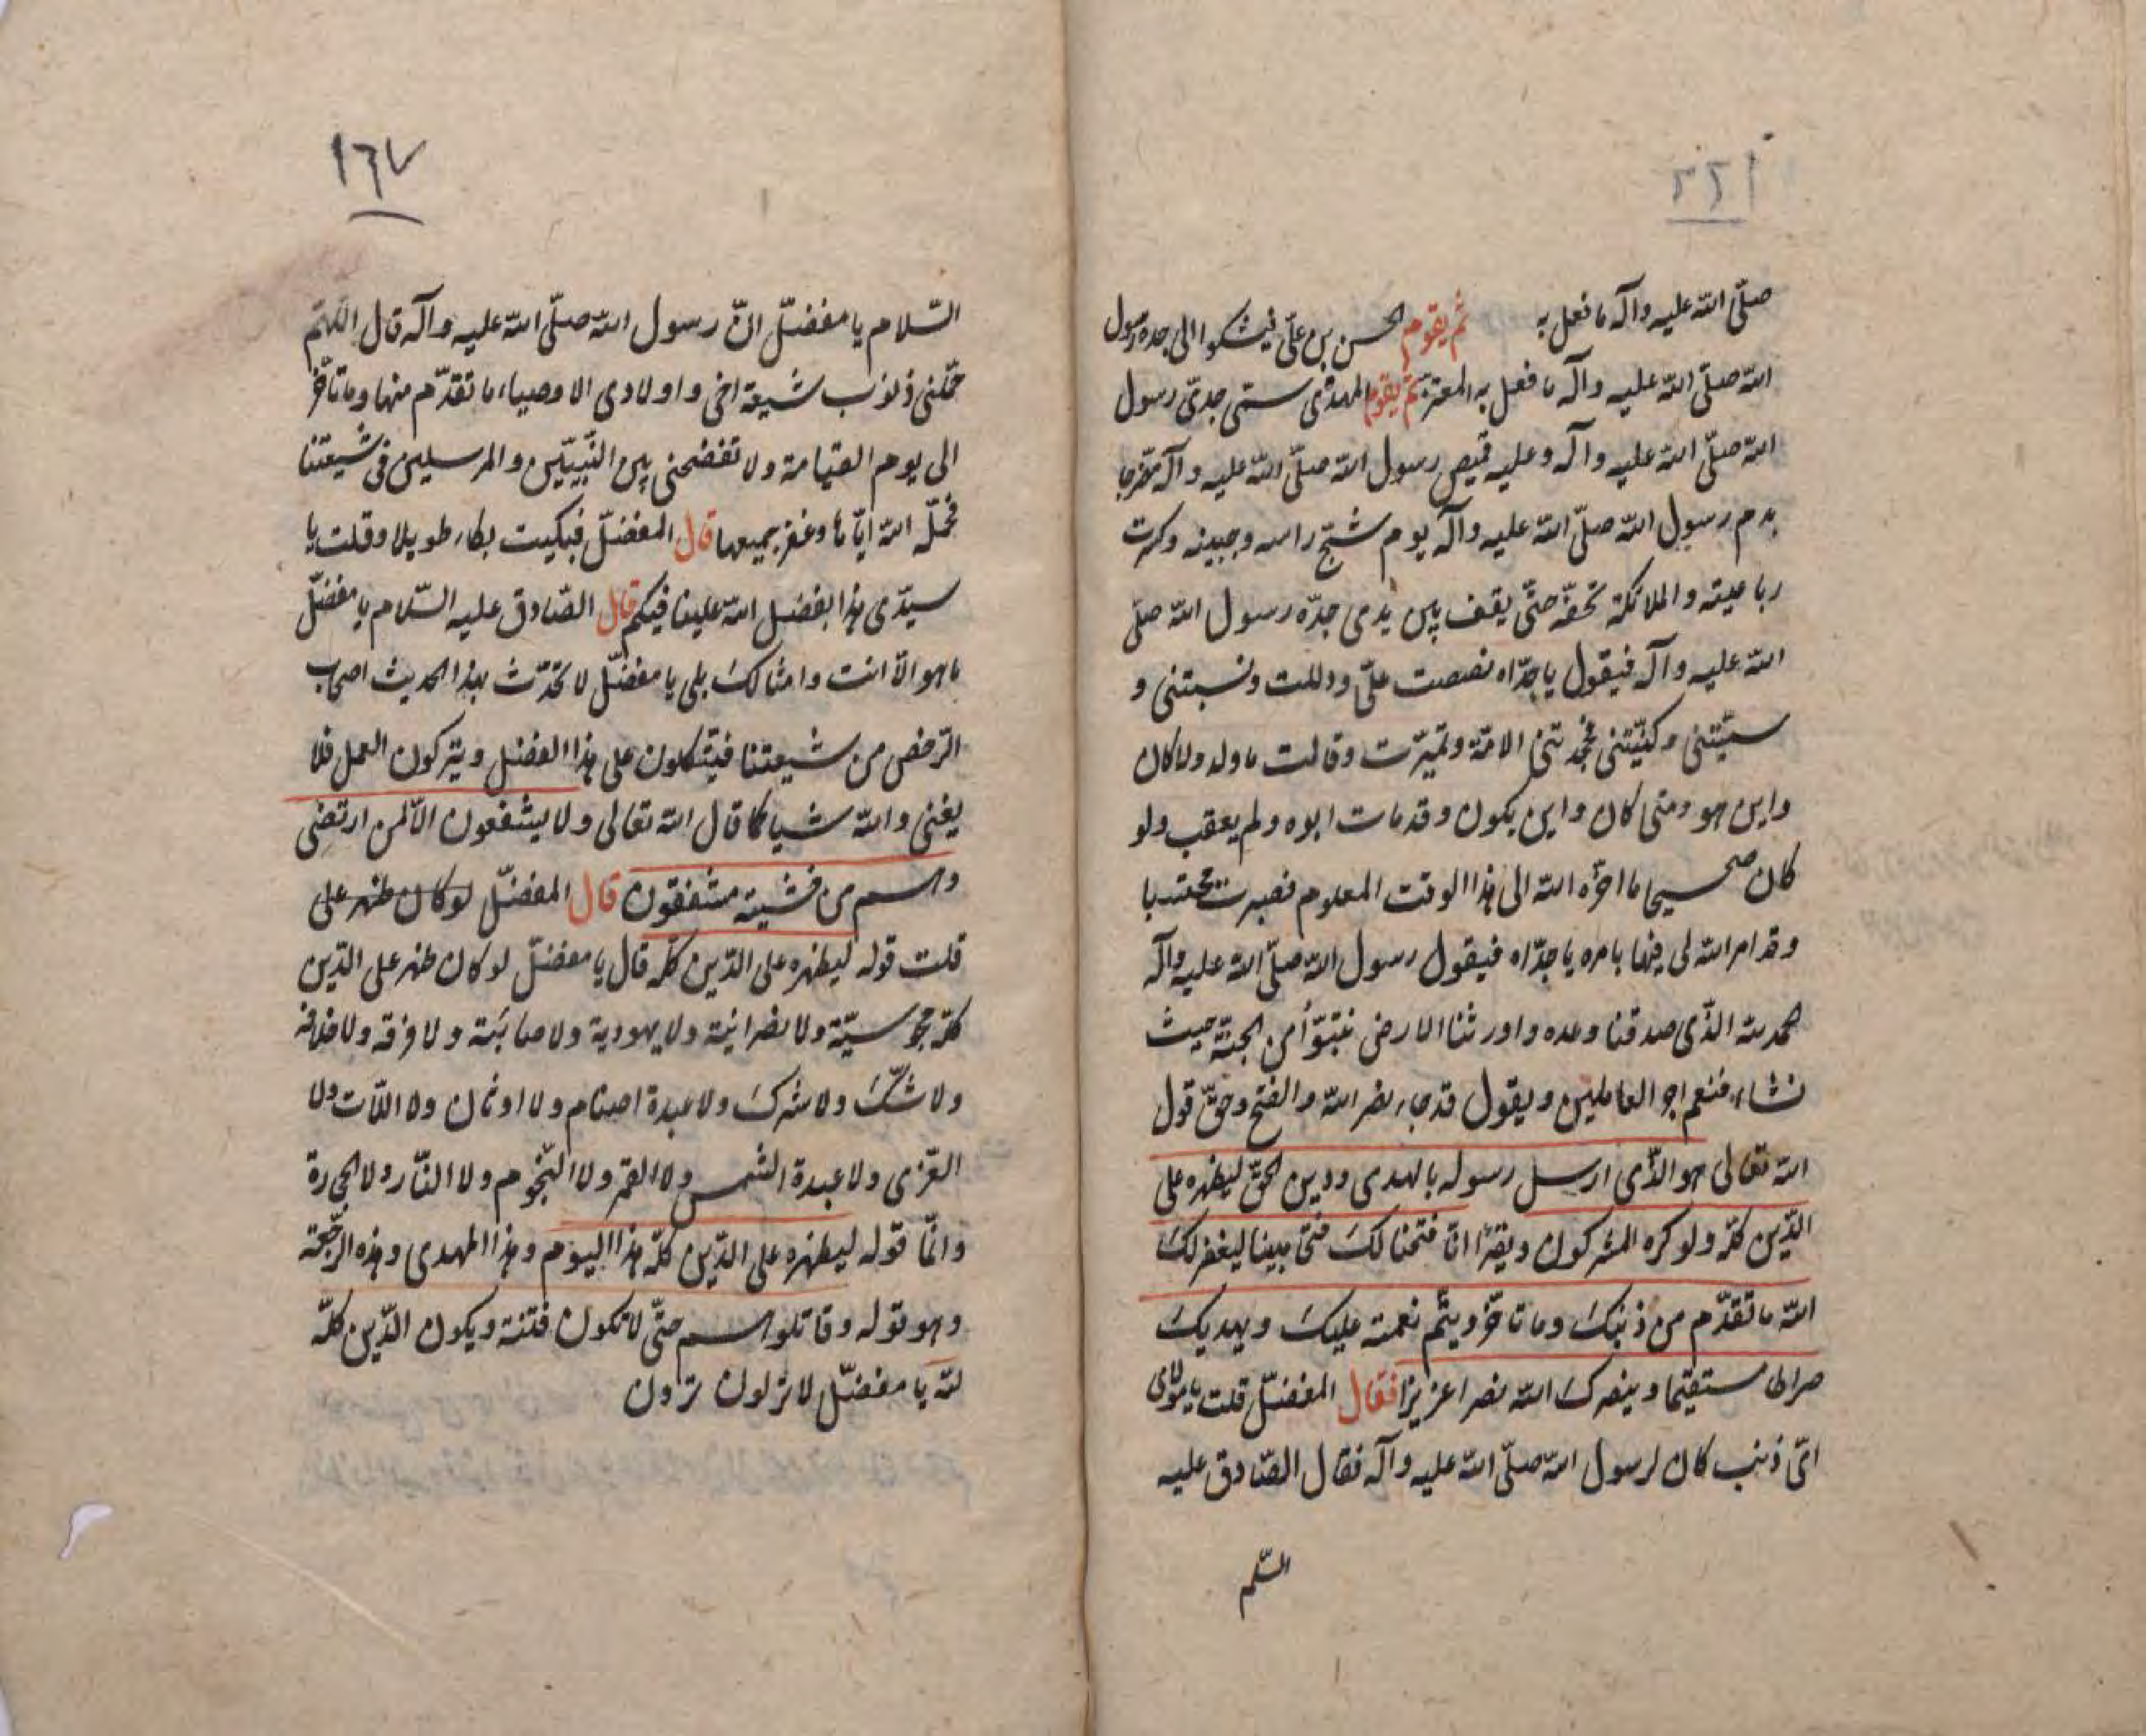 صلّى الله عليه وآله ما فعل به ثم يقوم الحسن بن علىّ فيشكوا الى جده رسول
الله صلّى الله عليه وآله ما فعل به المعتز ثمّ يقوم المهدى سمّى جدىّ رسول
الله صلّى الله عليه وآله وعليه قميص رسول الله صلّى الله عليه وآله مضرجا
بدم رسول الله صلّى الله عليه وآله يوم شجّ راسه وجبينه وكسرت
رباعيته والملائكة تحفّه حتّى يقف بين يدى جدّه رسول الله صلّى
الله عليه وآله فيقول ياجدّاه نصصت علىّ ودللت ونسبتنى و
سمّيتنى وكنّيتنى فجحدتنى الامّة وتميّرت وقالت ما ولد ولا كان
واين هو ومتى كان واين يكون وقد مات ابوه ولم يعقب ولو
كان صحيحا ما اخّره الله الى هذا الوقت المعلوم فصبرت محتسبا
وقد امر الله لى فيها بامره ياجدّاه فيقول رسول الله صلّى الله عليه وآله
الحمد لله الّذى صدقنا وعده واورثنا الارض نتبوّأ من الجنّة حيث
نشاء فنعم اجر العاملين ويقول قد جاء نصر الله والفتح وحقّ قول
الله تعالى هو الّذى ارسل رسوله بالهدى ودين الحقّ ليظهره على
الدّين كلّه ولو كره المشركون ويقرأ انّا فتحنا لك فتحا مبينا ليغفر لك
الله ما تقدّم من ذنبك وما تاخّر ويتمّ نعمته عليك ويهديك
صراطا مستقيما وينصرك الله نصرا عزيزا فقال المفضّل قلت يا مولاى
اىّ ذنب كان لرسول الله صلّى الله عليه وآله فقال الصّادق عليه
السّلم
١٦٧
السّلام يا مفضّل انّ رسول الله صلّى الله عليه وآله قال اللهمّ
حمّلنى ذنوب شيعة اخى واولادى الاوصياء ما تقدّم منها وما تاخّر
الى يوم القيامة ولا تفضحنى بين النّبيّين والمرسلين فى شيعتنا
فحمّله الله ايّاها وغفر جميعها قال المفضّل فبكيت بكاء طويلا وقلت يا
سيّدى هذا بفضل الله علينا فيكم قال الصّادق عليه السّلام يا مفضّل
ما هو الّا انت وامثالك بلى يا مفضّل لا تحدّث بهذا الحديث اصحاب
الرّخص من شيعتنا فيتّكلون على هذا الفضل ويتركون العمل فلا
يغنى والله شيا كما قال الله تعالى ولا يشفعون الّا لمن ارتضى
وهم من خشيته مشفقون قال المفضّل لو كان ظهر على
قلت قوله ليظهره على الدّين كلّه قال يا مفضّل لو كان ظهر على الدّين
كلّه مجوسيّة ولا نصرانيّة ولا يهودية ولا صابئة ولا فرقة ولا خلافة
ولا شكّ ولا شرك ولا عبدة اصنام ولا اوثان ولا اللّات ولا
العزّى ولا عبدة الشمس ولا القمر ولا النّجوم ولا النّار ولا الحجارة
وانّما قوله ليظهره على الدّين كلّه هذا اليوم وهذا المهدى وهذه الرّجعة
وهو قوله وقاتلوهم حتّى لا تكون فتنة ويكون الدّين كلّه
لله يا مفضّل لا تزلون تردن